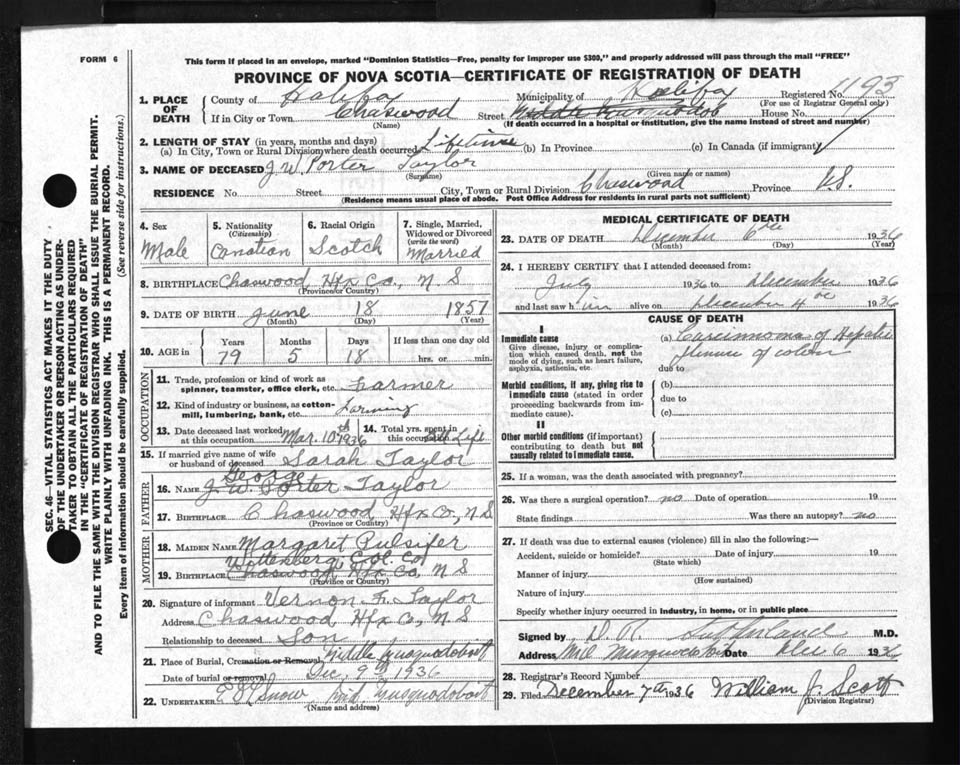 FORM 6
This form if placed in an envelope, marked "Dominion Statistics—Free, penalty for improper use $300," and properly addressed will pass through the mail "FREE"
PROVINCE OF NOVA SCOTIA—CERTIFICATE OF REGISTRATION OF DEATH
1193
1. PLACE OF DEATH County of Halifax Municipality of Halifax Registered No.
(For use of Registrar General only)
If in City or Town Chaswood Street House No.
(Name) (If death occurred in a hospital or institution, give the name instead of street and number)
2. LENGTH OF STAY (in years, months and days)
(a) In City, Town or Rural Division where death occurred Lifetime (b) In Province (c) In Canada (if immigrant)
3. NAME OF DECEASED J. W. Porter Taylor
(Surname) (Given name or names)
RESIDENCE No Street City, Town or Rural Division Chaswood Province N.S.
(Residence means usual place of abode. Post Office Address for residents in rural parts not sufficient)
4. Sex Male
5. Nationality (Citizenship) Canadian
6. Racial Origin Scotch
7. Single, Married, Widowed or Divorced (write the word) Married
8. BIRTHPLACE Chaswood Hfx Co., N S
(Province or Country)
9. DATE OF BIRTH June 18 1857
(Month) (Day) (Year)
10. AGE in Years Months Days If less than one day old
79 5 18 hrs. or min.
OCCUPATION
11. Trade, profession or kind of work as spinner, teamster, office clerk, etc. Farmer
12. Kind of industry or business, as cotton-mill, lumbering, bank, etc. Farming
13. Date deceased last worked at this occupation Mar. 10th 1936
14. Total yrs. spent in this occupation Life
15. If married give name of wife or husband of deceased Sarah Taylor
FATHER
George
16. Name J. W. Porter Taylor
17. Birthplace Chaswood Hfx Co, N S
(Province or Country)
MOTHER
18. Maiden Name Margaret Pulsifer
Wittenberg Col. Co
19. Birthplace Chaswood Hfx Co, N S
(Province or Country)
20. Signature of informant Vernon F. Taylor
Address Chaswood Hfx Co, N S
Relationship to deceased Son
21. Place of Burial, Cremation or Removal Middle Musquodoboit
Date of burial or removal Dec, 9th 1936
22. Undertaker Snow Mid. Musquodoboit
(Name and address)
MEDICAL CERTIFICATE OF DEATH
23. DATE OF DEATH December 6th 1936
(Month) (Day) (Year)
24. I HEREBY CERTIFY that I attended deceased from:
July 1936 to December 1936
and last saw him alive on December 4th 1936
CAUSE OF DEATH
I
Immediate cause (a) Carcinoma of Hepatic
Give disease, injury or complication which caused death, not the mode of dying, such as heart failure, asphyxia, asthenia, etc.
flexure of colon
due to
Morbid conditions, if any, giving rise to immediate cause (stated in order proceeding backwards from immediate cause).
(b)
due to
(c)
II
Other morbid conditions (if important) contributing to death but not causally related to immediate cause.
25. If a woman, was the death associated with pregnancy?
26. Was there a surgical operation? no Date of operation 19
State findings Was there an autopsy? no
27. If death was due to external causes (violence) fill in also the following:—
Accident, suicide or homicide? Date of injury 19
(State which)
Manner of injury
(How sustained)
Nature of injury
Specify whether injury occurred in industry, in home, or in public place
Signed by D. R. Sutherland M.D.
Address Mid Musquodoboit Date Dec 6 1936
28. Registrar's Record Number
29. Filed December 7th 1936 William J. Scott
(Division Registrar)
SEC. 46—VITAL STATISTICS ACT MAKES IT THE DUTY
OF THE UNDERTAKER OR PERSON ACTING AS UNDER-
TAKER TO OBTAIN ALL THE PARTICULARS REQUIRED
IN THE "CERTIFICATE OF REGISTRATION OF DEATH"
AND TO FILE THE SAME WITH THE DIVISION REGISTRAR WHO SHALL ISSUE THE BURIAL PERMIT.
WRITE PLAINLY WITH UNFADING INK. THIS IS A PERMANENT RECORD.
Every item of information should be carefully supplied. (See reverse side for instructions.)